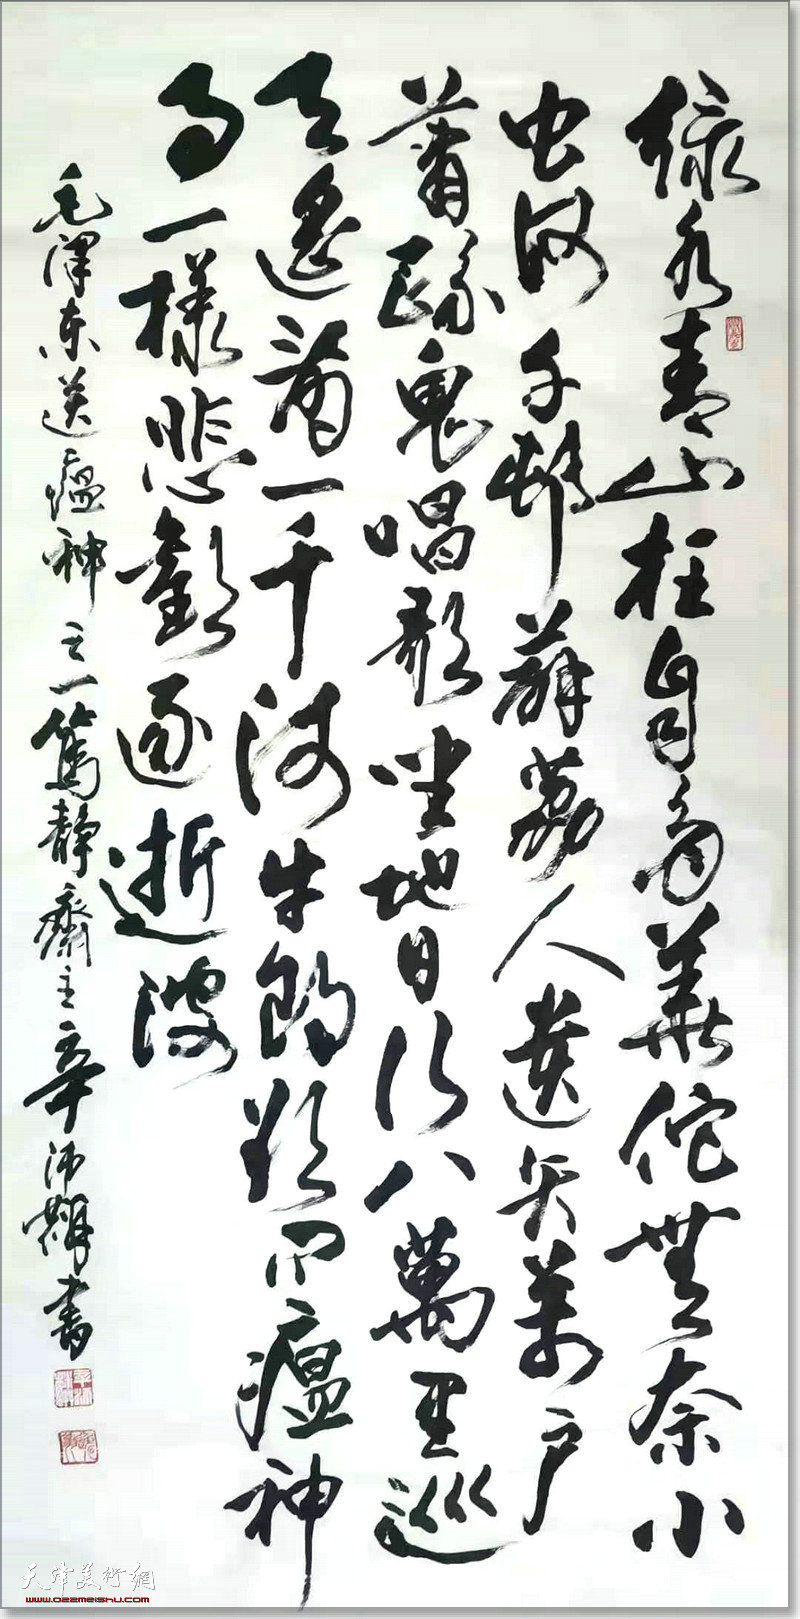 绿水青山枉自多華佗無奈小
虫何千村薜荔人遺矢萬户
蕭疏鬼唱歌坐地日行八萬里巡
天遥看一千河牛郎欲问瘟神
事一樣悲歡逐逝波
毛澤东送瘟神之一篤靜齋主辛沛書
天津美術網
www.022meishu.com